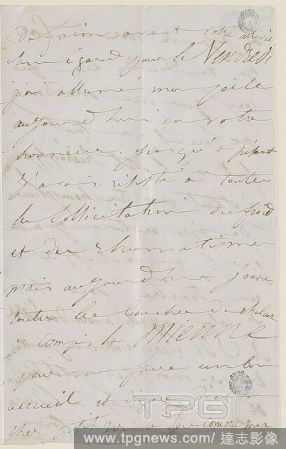 de faim avant votre arrivée
sans égard pour le Vendredi
j'ai allumé mon poêle
aujourd'hui en votre
honneur. jusqu'à présent
j'avais résisté à toutes
les sollicitations du froid
et des rhumatismes
mais aujourd'hui j'ouvre
toutes les bouches de chaleur
y compris la mienne
pour vous faire un bon
accueil et
cher petit
TPG
www.tpgnews.com / 達志影像